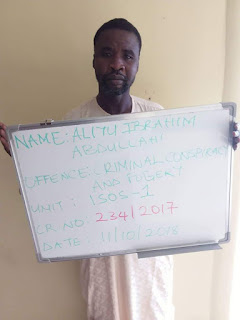 NAME: ALIYU IBRAHIM
ABDULLAHI
OFFENCE: CRIMINAL CONSPIRACY
AND FOGERY
UNIT: ISOS-1
CR NO: 234/2017
DATE: 11/10/2018